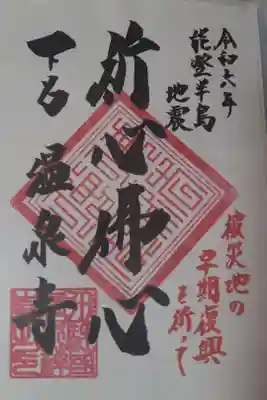 令和六年
能登半島
地震
被災地の
早期復興
を祈って
祈心佛心
下呂 温泉寺